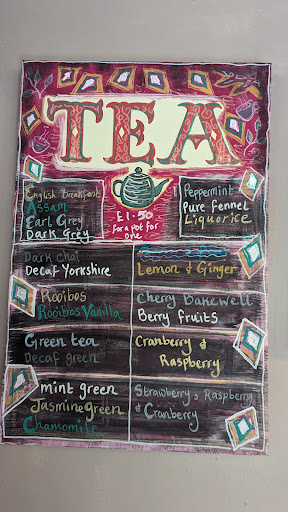 TEA
English Breakfast
Assam
Earl Grey
Dark Grey
£1.50
for a pot for
one
Peppermint
Pure Fennel
Liquorice
Dark chai
Decaf Yorkshire
Lemon & Ginger
Rooibos
Rooibos Vanilla
Cherry Bakewell
Berry fruits
Green tea
Decaf green
Cranberry &
Raspberry
mint green
Jasmine Green
Chamomile
Strawberry, Raspberry
& Cranberry